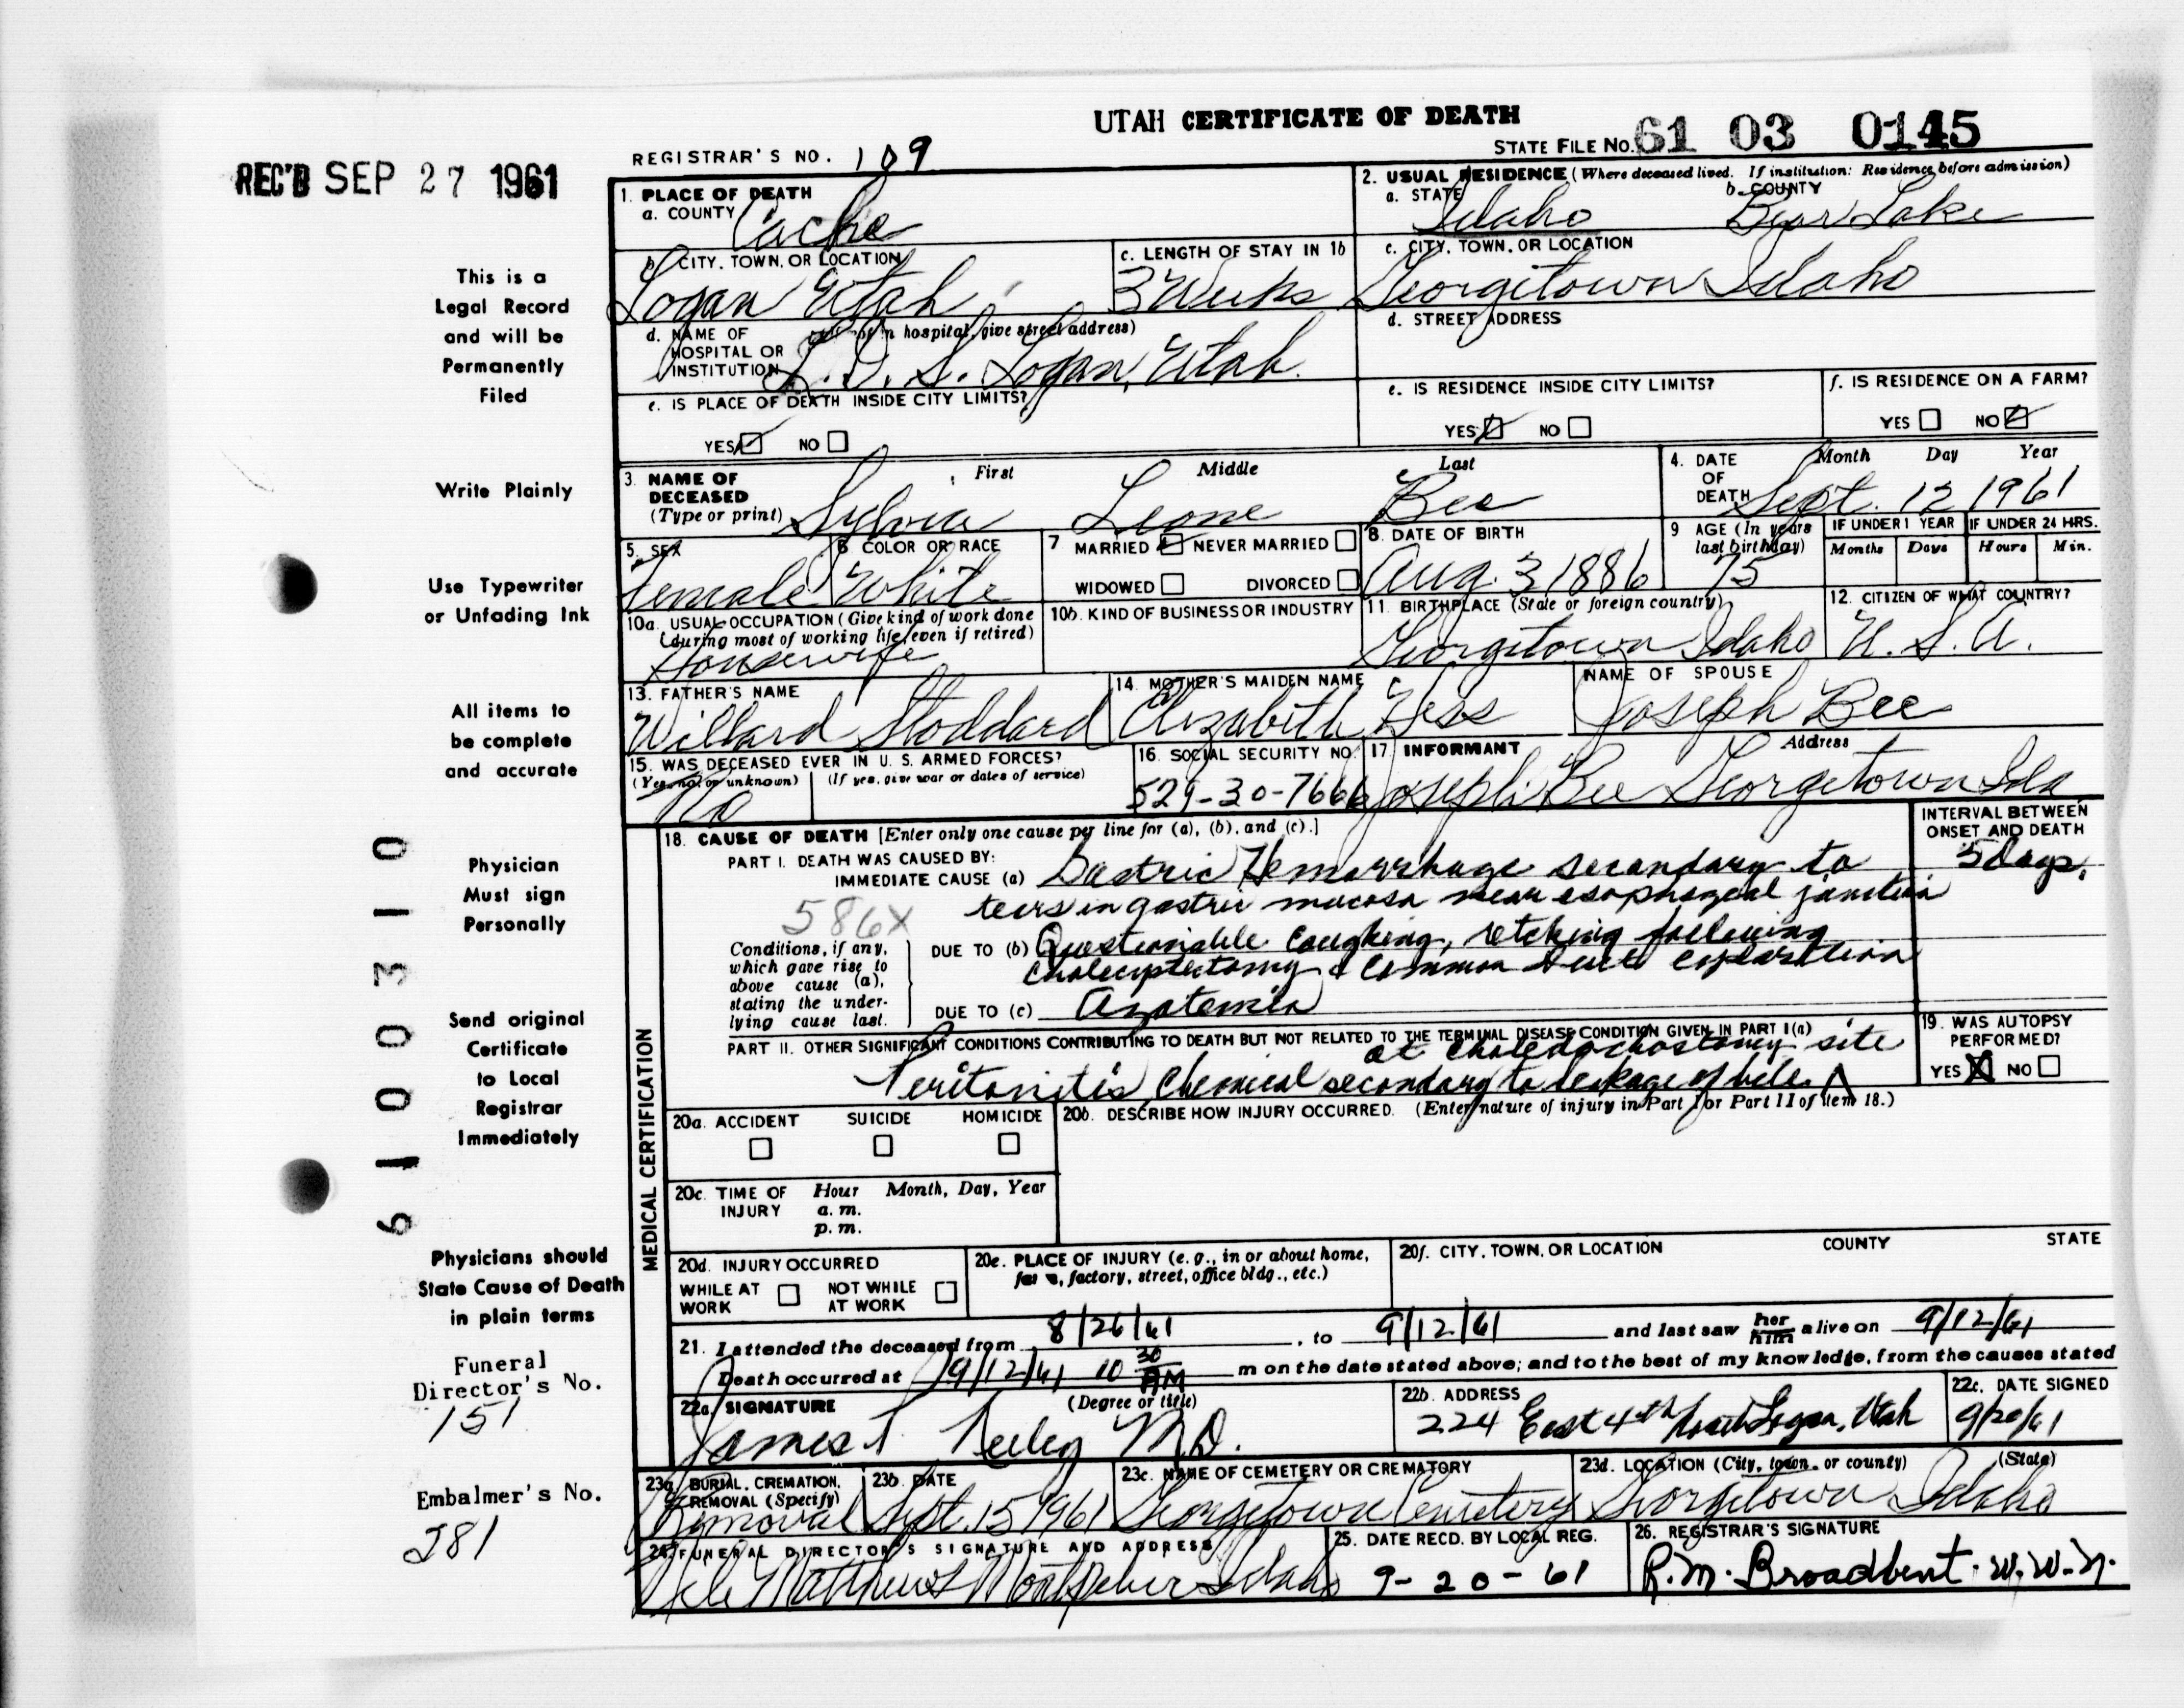 UTAH CERTIFICATE OF DEATH
STATE FILE NO. 61 03 0145
REGISTRAR'S NO. 109
REC'D SEP 27 1961
This is a
Legal Record
and will be
Permanently
Filed
Write Plainly
Use Typewriter
or Unfading Ink
All items to
be complete
and accurate
Physician
Must sign
Personally
Send original
Certificate
to Local
Registrar
Immediately
Physicians should
State Cause of Death
in plain terms
Funeral
Director's No.
151
Embalmer's No.
281
6100310
1. PLACE OF DEATH
a. COUNTY Cache
2. USUAL RESIDENCE (Where deceased lived. If institution: Residence before admission)
a. STATE Idaho b. COUNTY Bear Lake
b. CITY, TOWN, OR LOCATION Logan Utah
c. LENGTH OF STAY IN 1b 3 Weeks
c. CITY, TOWN, OR LOCATION Georgetown Idaho
d. NAME OF HOSPITAL OR INSTITUTION (If not in hospital, give street address) L.D.S. Logan, Utah.
d. STREET ADDRESS
e. IS PLACE OF DEATH INSIDE CITY LIMITS?
YES NO
e. IS RESIDENCE INSIDE CITY LIMITS?
YES NO
f. IS RESIDENCE ON A FARM?
YES NO
3. NAME OF DECEASED (Type or print) First Middle Last
Sylvia Leone Bee
4. DATE OF DEATH Month Day Year
Sept. 12 1961
5. SEX Female
6 COLOR OR RACE White
7 MARRIED NEVER MARRIED
WIDOWED DIVORCED
8. DATE OF BIRTH Aug. 3 1886
9 AGE (In years last birthday) 75
IF UNDER 1 YEAR Months Days
IF UNDER 24 HRS. Hours Min.
10a. USUAL OCCUPATION (Give kind of work done during most of working life, even if retired)
Housewife
10b. KIND OF BUSINESS OR INDUSTRY
11. BIRTHPLACE (State or foreign country) Georgetown Idaho
12. CITIZEN OF WHAT COUNTRY? U.S.A.
13. FATHER'S NAME Willard Stoddard
14. MOTHER'S MAIDEN NAME Elizabeth Hess
NAME OF SPOUSE Joseph Bee
15. WAS DECEASED EVER IN U. S. ARMED FORCES?
(Yes, no, or unknown) (If yes, give war or dates of service)
No
16. SOCIAL SECURITY NO. 529-30-7666
17. INFORMANT Address
Joseph Bee Georgetown Ida
18. CAUSE OF DEATH [Enter only one cause per line for (a), (b), and (c).]
INTERVAL BETWEEN ONSET AND DEATH
PART I. DEATH WAS CAUSED BY:
IMMEDIATE CAUSE (a) Gastric Hemorrhage secondary to 5 days.
tears in gastric mucosa near esophageal junction
586X
Conditions, if any, which gave rise to above cause (a), stating the underlying cause last.
DUE TO (b) Questionable coughing, retching following
cholecystectomy & common duct exploration
DUE TO (c) Azotemia
PART II. OTHER SIGNIFICANT CONDITIONS CONTRIBUTING TO DEATH BUT NOT RELATED TO THE TERMINAL DISEASE CONDITION GIVEN IN PART I(a)
at choledochostomy site
Peritonitis, Chemical secondary to leakage of bile
19. WAS AUTOPSY PERFORMED?
YES X NO
MEDICAL CERTIFICATION
20a. ACCIDENT SUICIDE HOMICIDE
20b. DESCRIBE HOW INJURY OCCURRED. (Enter nature of injury in Part I or Part II of item 18.)
20c. TIME OF INJURY Hour Month, Day, Year
a. m.
p. m.
20d. INJURY OCCURRED
WHILE AT WORK NOT WHILE AT WORK
20e. PLACE OF INJURY (e. g., in or about home, farm, factory, street, office bldg., etc.)
20f. CITY, TOWN, OR LOCATION COUNTY STATE
21. I attended the deceased from 8/26/61, to 9/12/61 and last saw her him alive on 9/12/61
Death occurred at 9/12/61 10 30 AM m on the date stated above; and to the best of my knowledge, from the causes stated
22a. SIGNATURE (Degree or title)
James T. M.D.
22b. ADDRESS 224 East 4th North Logan, Utah
22c. DATE SIGNED 9/20/61
23a. BURIAL, CREMATION, REMOVAL (Specify) Removal
23b. DATE Sept. 15 1961
23c. NAME OF CEMETERY OR CREMATORY Georgetown Cemetery
23d. LOCATION (City, town, or county) (State)
Georgetown Idaho
24. FUNERAL DIRECTOR'S SIGNATURE AND ADDRESS
Matthews Montpelier Idaho
25. DATE RECD. BY LOCAL REG. 9-20-61
26. REGISTRAR'S SIGNATURE
R.M. Broadbent W.W.N.